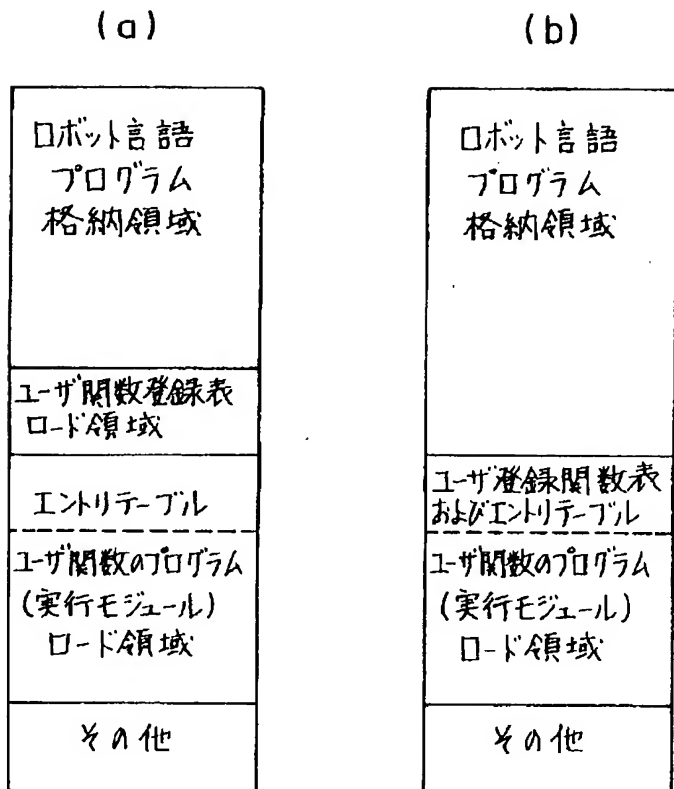 (a)
ロボット言語
プログラム
格納領域
ユーザ関数登録表
ロード領域
エントリテーブル
ユーザ関数のプログラム
(実行モジュール)
ロード領域
その他
(b)
ロボット言語
プログラム
格納領域
ユーザ登録関数表
およびエントリテーブル
ユーザ関数のプログラム
(実行モジュール)
ロード領域
その他